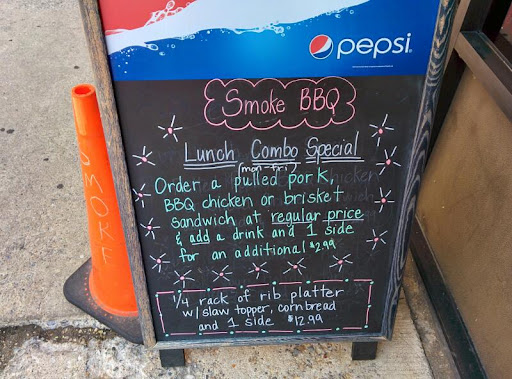 pepsi
Smoke BBQ
Lunch Combo Special
(mon-fri)
Order a pulled pork,
BBQ chicken or brisket
sandwich at regular price
& add a drink and 1 side
for an additional $2.99
1/4 rack of rib platter
w/slaw topper, cornbread
and 1 side $12.99
SMOKE